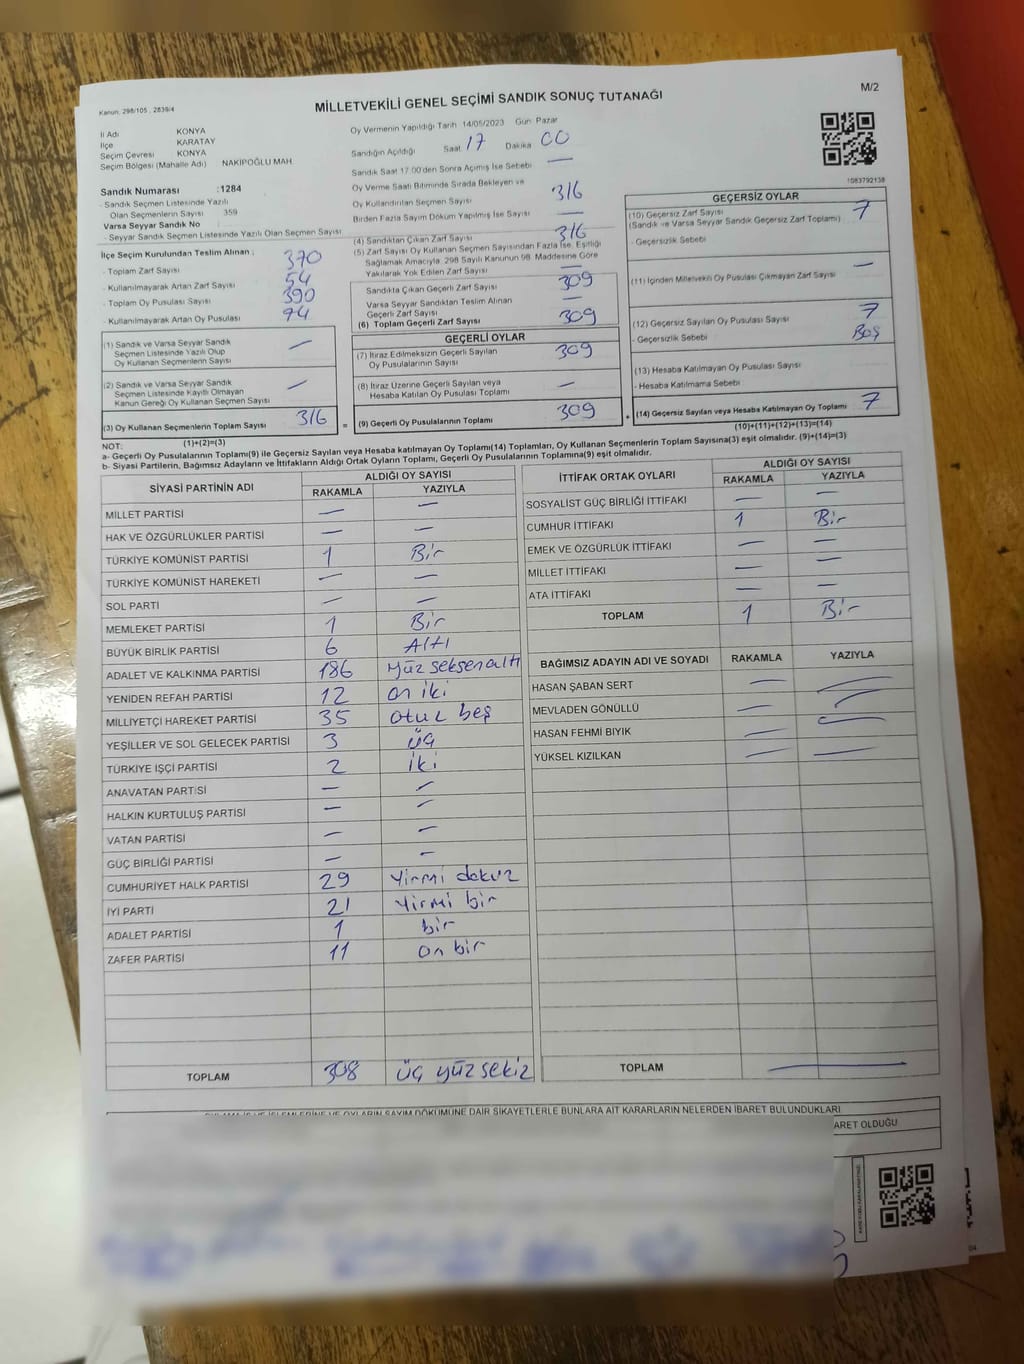 Kanun, 298/105 , 2839/4
MİLLETVEKİLİ GENEL SEÇİMİ SANDIK SONUÇ TUTANAĞI
M/2
İl Adı KONYA
İlçe KARATAY
Seçim Çevresi KONYA
Seçim Bölgesi (Mahalle Adı) NAKİPOĞLU MAH
Sandık Numarası :1284
- Sandık Seçmen Listesinde Yazılı
Olan Seçmenlerin Sayısı 359
Varsa Seyyar Sandık No :
- Seyyar Sandık Seçmen Listesinde Yazılı Olan Seçmen Sayısı
İlçe Seçim Kurulundan Teslim Alınan ;
- Toplam Zarf Sayısı 370
- Kullanılmayarak Artan Zarf Sayısı 54
- Toplam Oy Pusulası Sayısı 390
- Kullanılmayarak Artan Oy Pusulası 74
(1) Sandık ve Varsa Seyyar Sandık
Seçmen Listesinde Yazılı Olup
Oy Kullanan Seçmenlerin Sayısı —
(2) Sandık ve Varsa Seyyar Sandık
Seçmen Listesinde Kayıtlı Olmayan
Kanun Gereği Oy Kullanan Seçmen Sayısı —
(3) Oy Kullanan Seçmenlerin Toplam Sayısı 316
(1)+(2)=(3)
Oy Vermenin Yapıldığı Tarih 14/05/2023 Gün Pazar
Sandığın Açıldığı Saat 17 Dakika 00
Sandık Saat 17.00'den Sonra Açımış İse Sebebi —
Oy Verme Saati Bitiminde Sırada Bekleyen ve
Oy Kullandırılan Seçmen Sayısı 316
Birden Fazla Sayım Döküm Yapılmış İse Sayısı —
(4) Sandıktan Çıkan Zarf Sayısı 316
(5) Zarf Sayısı Oy Kullanan Seçmen Sayısından Fazla İse, Eşitliği
Sağlamak Amacıyla, 298 Sayılı Kanunun 98. Maddesine Göre
Yakılarak Yok Edilen Zarf Sayısı
Sandıkta Çıkan Geçerli Zarf Sayısı 309
Varsa Seyyar Sandıktan Teslim Alınan
Geçerli Zarf Sayısı —
(6) Toplam Geçerli Zarf Sayısı 309
GEÇERLİ OYLAR
(7) İtiraz Edilmeksizin Geçerli Sayılan
Oy Pusulalarının Sayısı 309
(8) İtiraz Üzerine Geçerli Sayılan veya
Hesaba Katılan Oy Pusulası Toplamı —
= (9) Geçerli Oy Pusulalarının Toplamı 309 +
1083792138
GEÇERSİZ OYLAR
(10) Geçersiz Zarf Sayısı 7
(Sandık ve Varsa Seyyar Sandık Geçersiz Zarf Toplamı)
- Geçersizlik Sebebi
(11) İçinden Milletvekili Oy Pusulası Çıkmayan Zarf Sayısı —
(12) Geçersiz Sayılan Oy Pusulası Sayısı 7
- Geçersizlik Sebebi Boş
(13) Hesaba Katılmayan Oy Pusulası Sayısı
- Hesaba Katılmama Sebebi
(14) Geçersiz Sayılan veya Hesaba Katılmayan Oy Toplamı 7
(10)+(11)+(12)+(13)=(14)
NOT:
a- Geçerli Oy Pusulalarının Toplamı(9) ile Geçersiz Sayılan veya Hesaba katılmayan Oy Toplamı(14) Toplamları, Oy Kullanan Seçmenlerin Toplam Sayısına(3) eşit olmalıdır. (9)+(14)=(3)
b- Siyasi Partilerin, Bağımsız Adayların ve İttifakların Aldığı Ortak Oyların Toplamı, Geçerli Oy Pusulalarının Toplamına(9) eşit olmalıdır.
SİYASİ PARTİNİN ADI ALDIĞI OY SAYISI
RAKAMLA YAZIYLA
MİLLET PARTİSİ — —
HAK VE ÖZGÜRLÜKLER PARTİSİ — —
TÜRKİYE KOMÜNİST PARTİSİ 1 Bir
TÜRKİYE KOMÜNİST HAREKETİ — —
SOL PARTİ — —
MEMLEKET PARTİSİ 1 Bir
BÜYÜK BİRLİK PARTİSİ 6 Altı
ADALET VE KALKINMA PARTİSİ 186 Yüz seksenaltı
YENİDEN REFAH PARTİSİ 12 on iki
MİLLİYETÇİ HAREKET PARTİSİ 35 otuz beş
YEŞİLLER VE SOL GELECEK PARTİSİ 3 üç
TÜRKİYE İŞÇİ PARTİSİ 2 iki
ANAVATAN PARTİSİ — —
HALKIN KURTULUŞ PARTİSİ — —
VATAN PARTİSİ — —
GÜÇ BİRLİĞİ PARTİSİ — —
CUMHURİYET HALK PARTİSİ 29 Yirmi dokuz
İYİ PARTİ 21 Yirmi bir
ADALET PARTİSİ 1 bir
ZAFER PARTİSİ 11 on bir
TOPLAM 308 üç yüz sekiz
İTTİFAK ORTAK OYLARI ALDIĞI OY SAYISI
RAKAMLA YAZIYLA
SOSYALİST GÜÇ BİRLİĞİ İTTİFAKI — —
CUMHUR İTTİFAKI 1 Bir
EMEK VE ÖZGÜRLÜK İTTİFAKI — —
MİLLET İTTİFAKI — —
ATA İTTİFAKI — —
TOPLAM 1 Bir
BAĞIMSIZ ADAYIN ADI VE SOYADI RAKAMLA YAZIYLA
HASAN ŞABAN SERT — —
MEVLADEN GÖNÜLLÜ — —
HASAN FEHMİ BIYIK — —
YÜKSEL KIZILKAN — —
TOPLAM —
İŞLEMLERİNE VE OYLARIN SAYIM DÖKÜMÜNE DAİR ŞİKAYETLERLE BUNLARA AİT KARARLARIN NELERDEN İBARET BULUNDUKLARI
ARET OLDUĞU